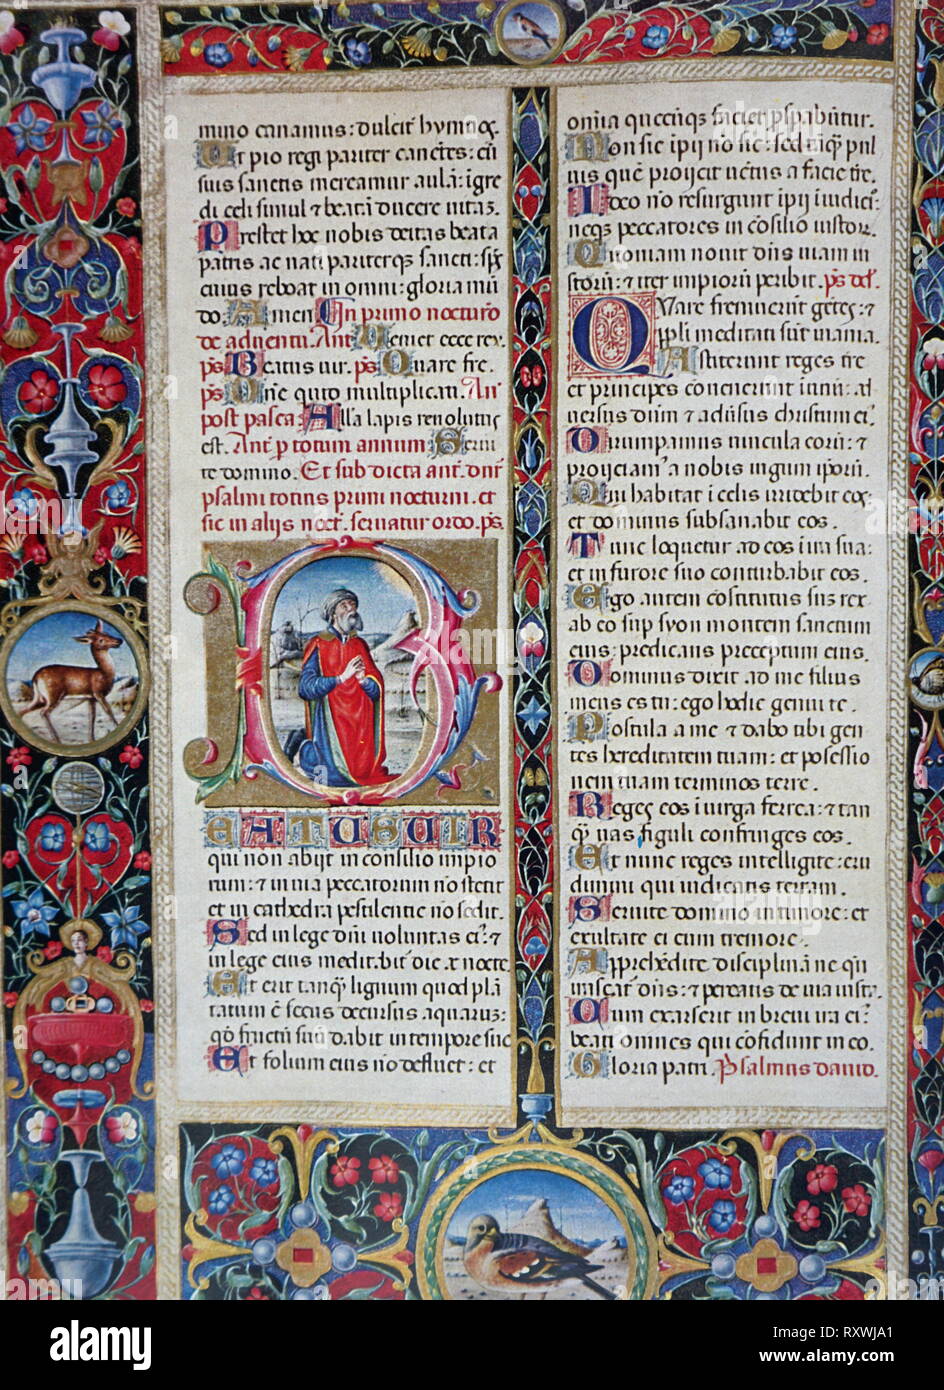 mino canamus: dulcit hymnos.
Ut pio regi pariter canētes: cū
suis sanctis mereamur aulā: īgre
di celi simul ⁊ beatā ducere vitā.
Prestet hoc nobis deitas beata
patris ac nati pariterq; sancti: sp̄s
cuius reboat in omni: gloria mū
do. Amen. In primo nocturo
de adventu. Ant. Veniet ecce rex.
ps. Beatus vir. ps. Quare fre.
ps. Dn̄e quid multiplicati. An̄
post pasca: Alla lapis revolutus
est. Ant. p totum annum Servi
te domino. Et sub dicta ant. dnr̄
psalmi totius primi nocturni. et
sic in alijs noct. servatur ordo. ps.
BEATUS VIR
qui non abijt in consilio impio
rum: ⁊ in via peccatorum nō stetit
et in cathedra pestilentie nō sedit.
Sed in lege dn̄i voluntas ei: ⁊
in lege eius meditabit die ac nocte.
Et erit tanq̄ lignum quod plā
tatum ē secus decursus aquarum:
qd̄ fructū suū dabit in tempore suo
Et folium eius nō defluet: et
omnia quecūq; faciet pspabūtur.
Non sic impij nō sic: sed tāq̄ pul
vis quē proijcit ventus a facie tre.
Ideo nō resurgunt ipij i iudici:
neq; peccatores in cōsilio iustor.
Quoniam novit dn̄s viam iu
storū: ⁊ iter impiorū peribit. ps. dd.
QUare fremuerūt gētes: ⁊
ppli meditati sūt inania.
Astiterunt reges tre
et principes convenerunt in unū: ad
versus dn̄m ⁊ advsus christum ei.
Dirumpamus vincula eorū: ⁊
proijciam a nobis iugum ipsorū.
Qui habitat i celis irridebit eos:
et dominus subsanabit eos.
Tunc loquetur ad eos i ira sua:
et in furore suo conturbabit eos.
Ego autem cōstitutus suz rex
ab eo sup syon montem sanctum
eius: predicans preceptum eius.
Dominus dixit ad me filius
meus es tu: ego hodie genui te.
Postula a me ⁊ dabo tibi gen
tes hereditatem tuam: et possessio
nem tuam terminos terre.
Reges eos i virga ferrea: ⁊ tan
q̄ vas figuli confringes eos.
Et nunc reges intelligite: eru
dimini qui iudicatis terram.
Servite domino in timore: et
exultate ei cum tremore.
Apprehēdite disciplinā ne qn̄
irascat dn̄s: ⁊ pereatis de via iusta.
Cum exarserit in brevi ira ei:
beati omnes qui cōfidunt in eo.
Gloria patri. Psalmus david.
alamy
Image ID: RXWJA1
www.alamy.com